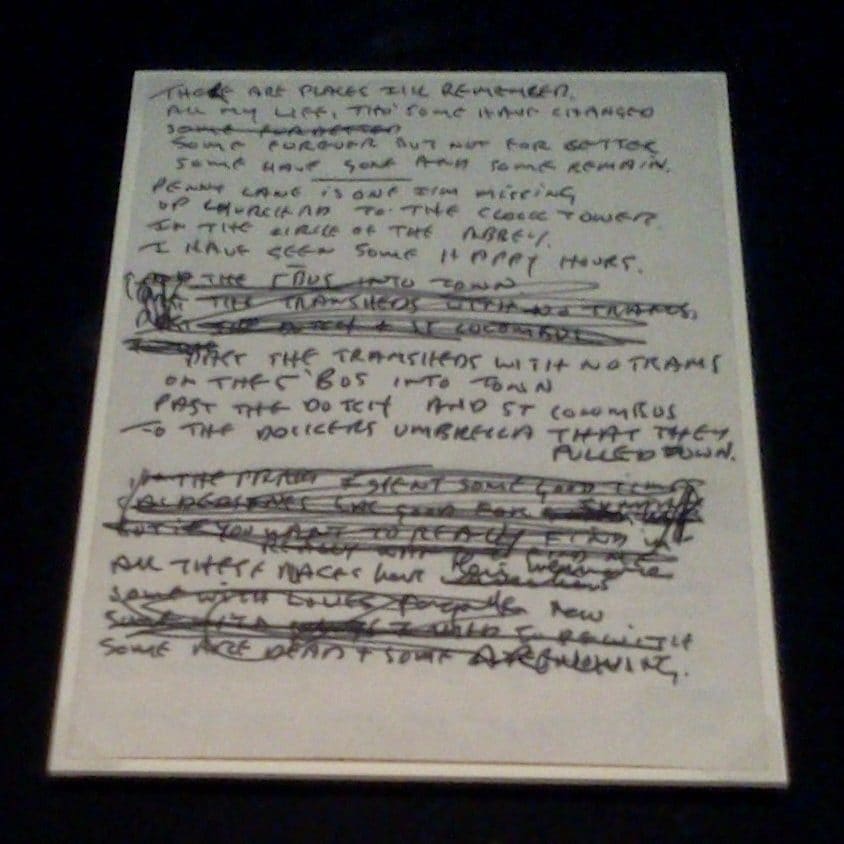 THERE ARE PLACES ILL REMEMBER.
ALL MY LIFE, THO' SOME HAVE CHANGED
SOME FOREVER
SOME FOREVER BUT NOT FOR BETTER
SOME HAVE GONE AND SOME REMAIN.
PENNY LANE IS ONE I'M MISSING
UP CHURCH RD TO THE CLOCK TOWER
IN THE CIRCLE OF THE ABBEY.
I HAVE SEEN SOME HAPPY HOURS.
THE 5 BUS INTO TOWN
THE TRAMSHEDS WITH NO TRAMS,
PAST THE DUTCH + ST COLOMBUS
PAST THE TRAMSHEDS WITH NO TRAMS
ON THE 5 BUS INTO TOWN
PAST THE DUTCH AND ST COLOMBUS
TO THE DOCKERS UMBRELLA THAT THEY
PULLED DOWN.
IN THE PARK I SPENT SOME GOOD
GOOD FOR
BUT IF YOU WANT TO REALLY FIND
REALLY WANT TO FIND ME
ALL THESE PLACES HAVE
SOME WITH LOVES forgotten now
SOME WITH
SOME ARE DEAD + SOME ARE LIVING.